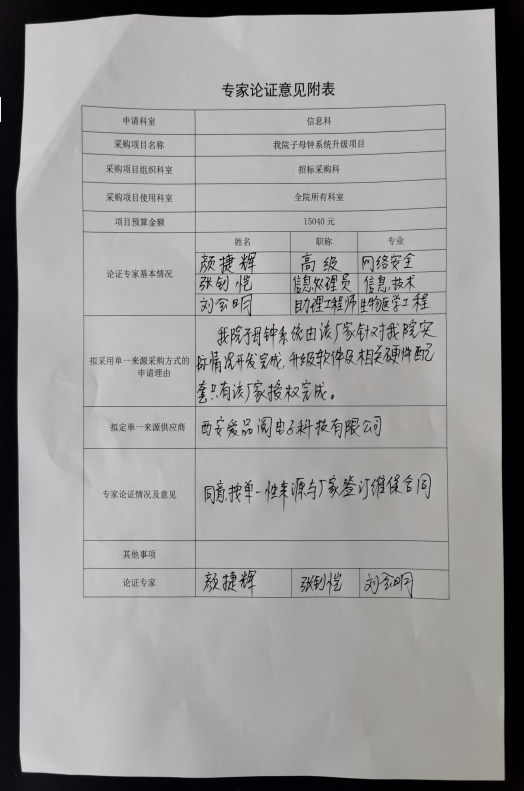 专家论证意见附表
申请科室 信息科
采购项目名称 我院子母钟系统升级项目
采购项目组织科室 招标采购科
采购项目使用科室 全院所有科室
项目预算金额 15040 元
论证专家基本情况 姓名 职称 专业
颜捷辉 高级 网络安全
张钊恺 信息处理员 信息技术
刘 明 助理工程师 生物医学工程
拟采用单一来源采购方式的
申请理由
我院子母钟系统由该厂家针对我院实
际情况开发完成,升级软件及相关硬件配
套只有该厂家授权完成。
拟定单一来源供应商 西安爱品阁电子科技有限公司
专家论证情况及意见 同意按单一性来源与厂家签订维保合同
其他事项
论证专家 颜捷辉 张钊恺 刘 明